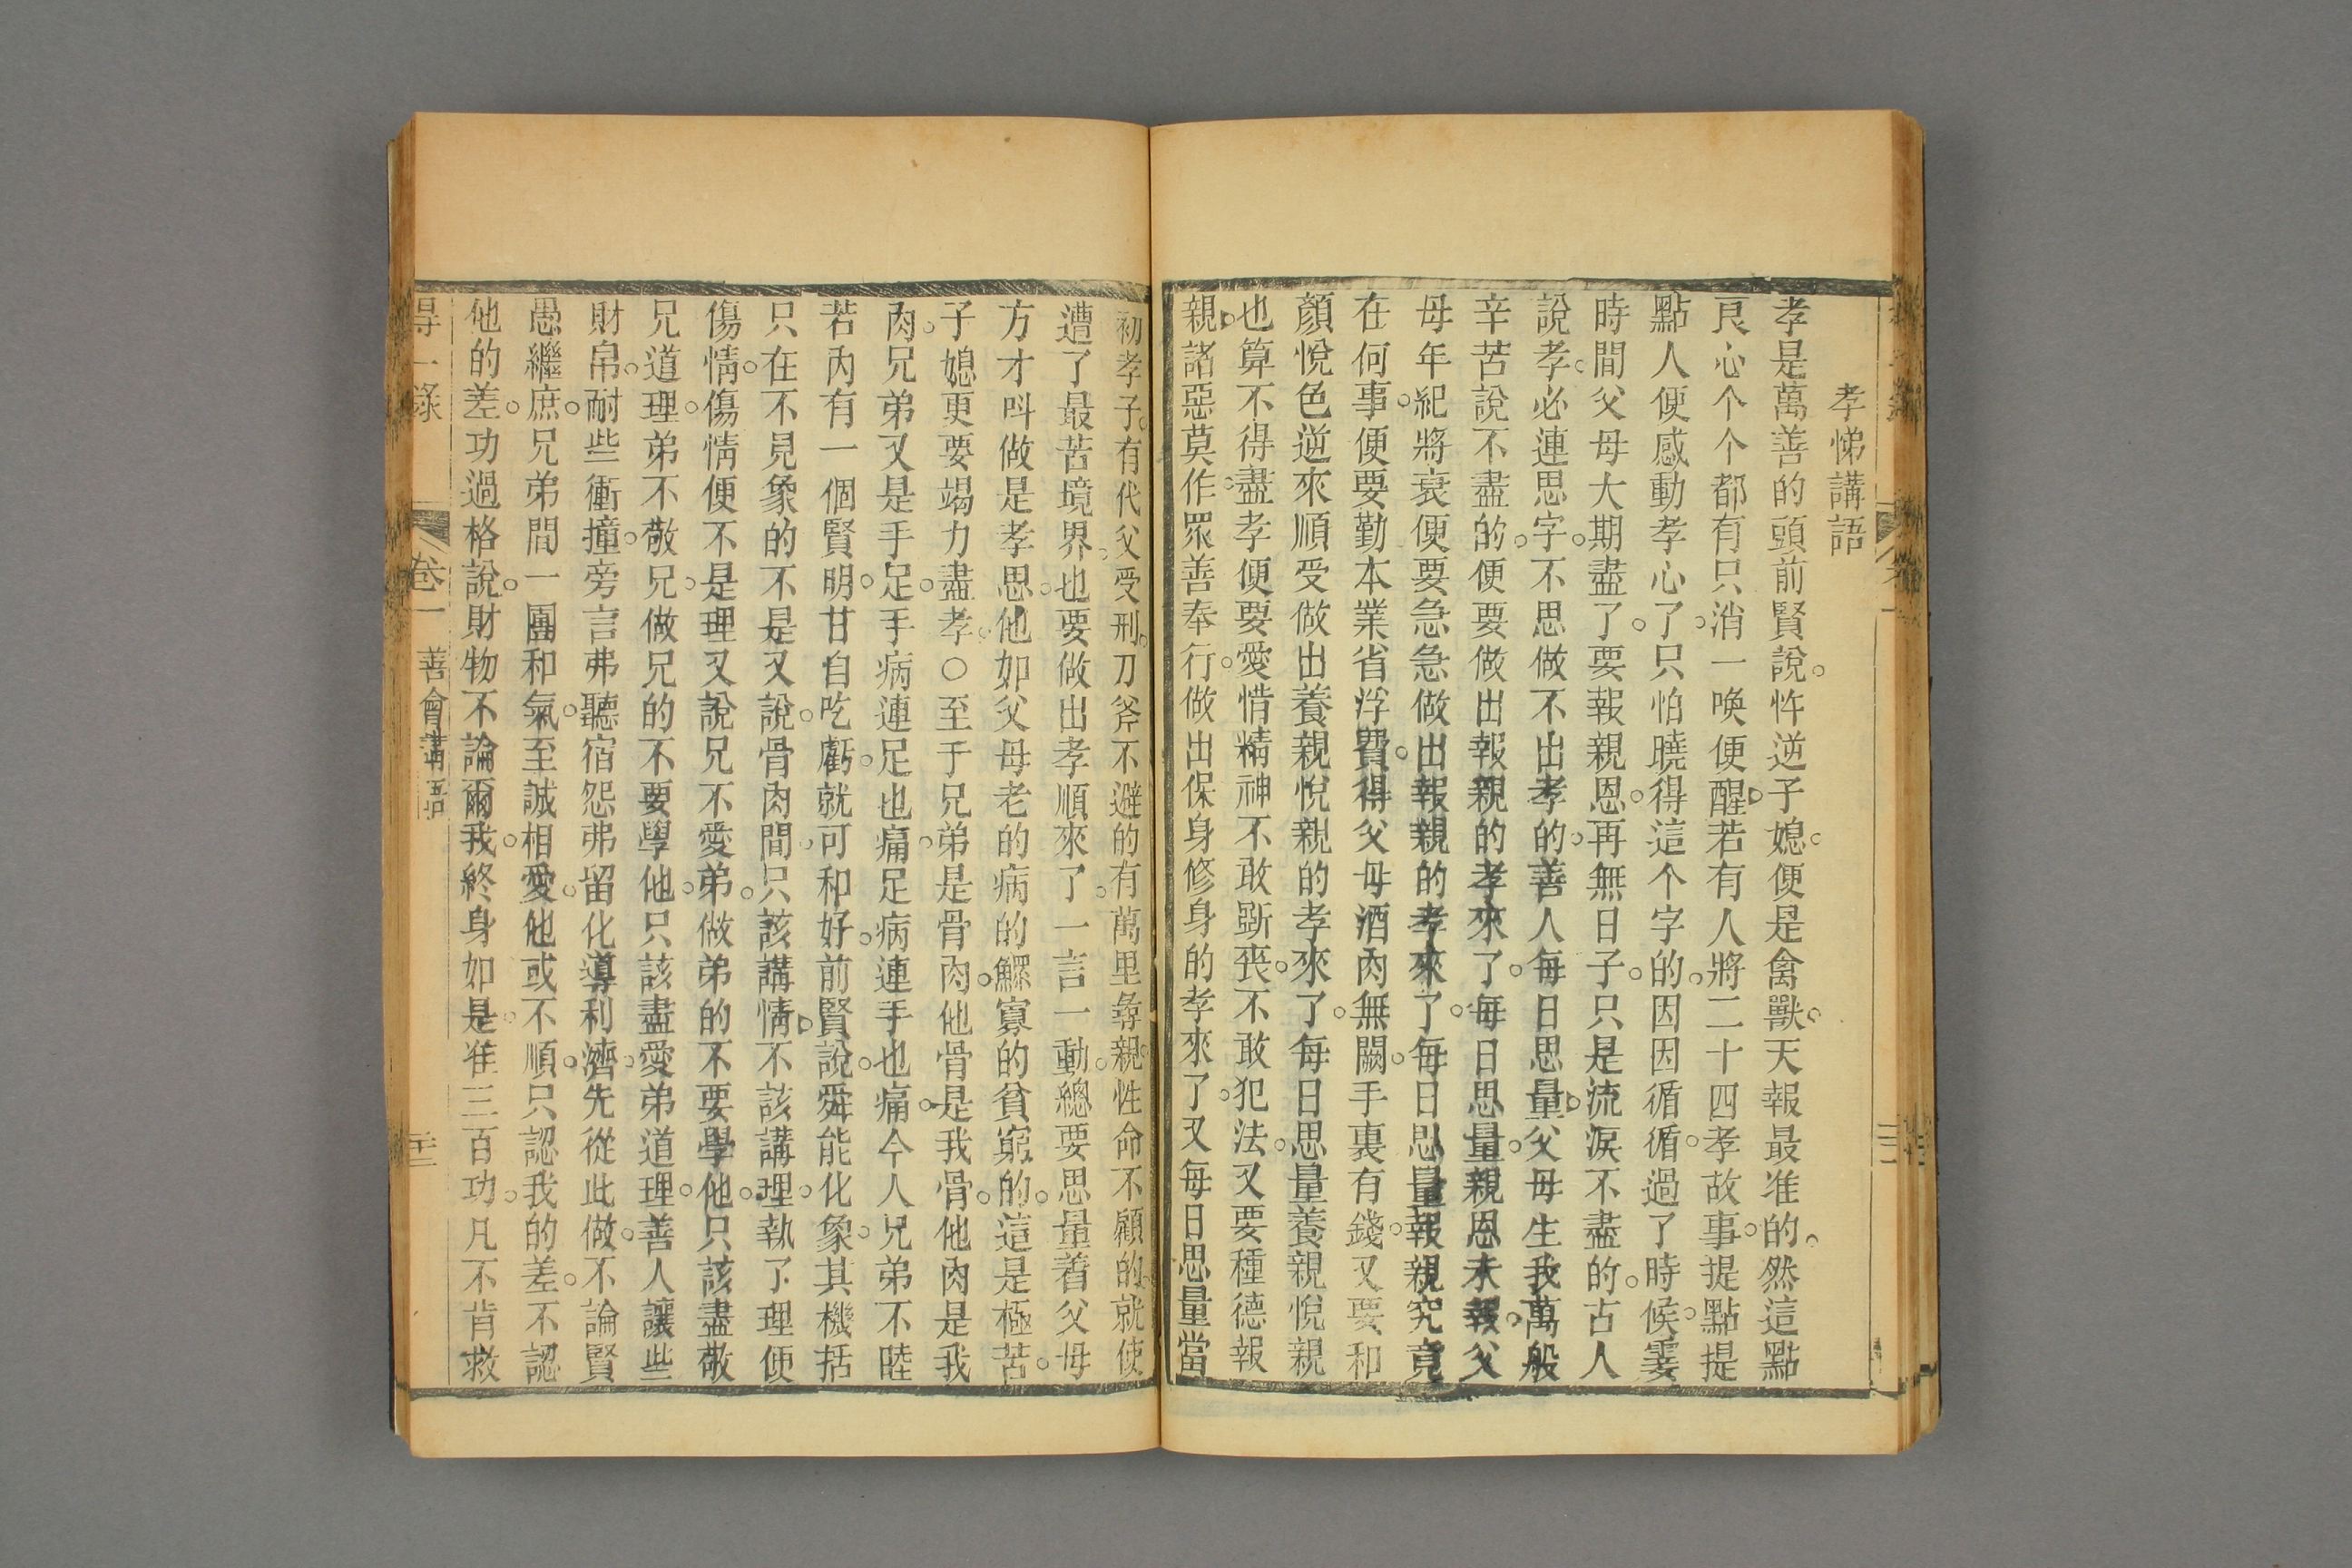 孝悌講語
孝是萬善的頭前賢說。忤逆子媳。便是禽獸。天報最准的。然這點
良心个个都有只消一喚便醒。若有人將二十四孝故事。提點提
點人便感動孝心了。只怕曉得這个字的。因因循循。過了時候。霎
時間父母大期盡了。要報親恩。再無日子。只是流淚不盡的。古人
說孝。必連思字。不思做不出孝的。善人每日思量。父母生我萬般
辛苦說不盡的。便要做出報親的孝來了。每日思量。親恩未報。父
母年紀將衰便要急急做出報親的孝來了。每日思量報親究竟
在何事。便要勤本業省浮費。得父母酒肉無闕。手裏有錢。又要和
顏悅色逆來順受做出養親悅親的孝來了。每日思量養親悅親
也算不得盡孝便要愛惜精神不敢斲喪。不敢犯法。又要種德報
親。諸惡莫作。眾善奉行。做出保身修身的孝來了。又每日思量當
初孝子。有代父受刑。刀斧不避的有萬里尋親。性命不顧的。就使
遭了最苦境界。也要做出孝順來了。一言一動。總要思量着父母
方才呌做是孝思。他如父母老的病的鰥寡的貧窮的。這是極苦。
子媳更要竭力盡孝。○至于兄弟是骨肉。他骨是我骨。他肉是我
肉。兄弟又是手足。手病連足也痛。足病連手也痛。今人兄弟不睦
若丙有一個賢明。甘自吃虧。就可和好。前賢說。舜能化象。其機括
只在不見象的不是又說。骨肉間。只該講情。不該講理。執了理便
傷情。傷情便不是理又說兄不愛弟。做弟的不要學他。只該盡敬
兄道理。弟不敬兄。做兄的不要學他。只該盡愛弟道理。善人讓些
財帛。耐些衝撞。旁言弗聽宿怨弗留化導利濟。先從此做。不論賢
愚繼庶。兄弟間一團和氣。至誠相愛。他或不順。只認我的差。不認
他的差。功過格說。財物不論爾我。終身如是。准三百功。凡不肯救
得一錄　卷一　善會講語